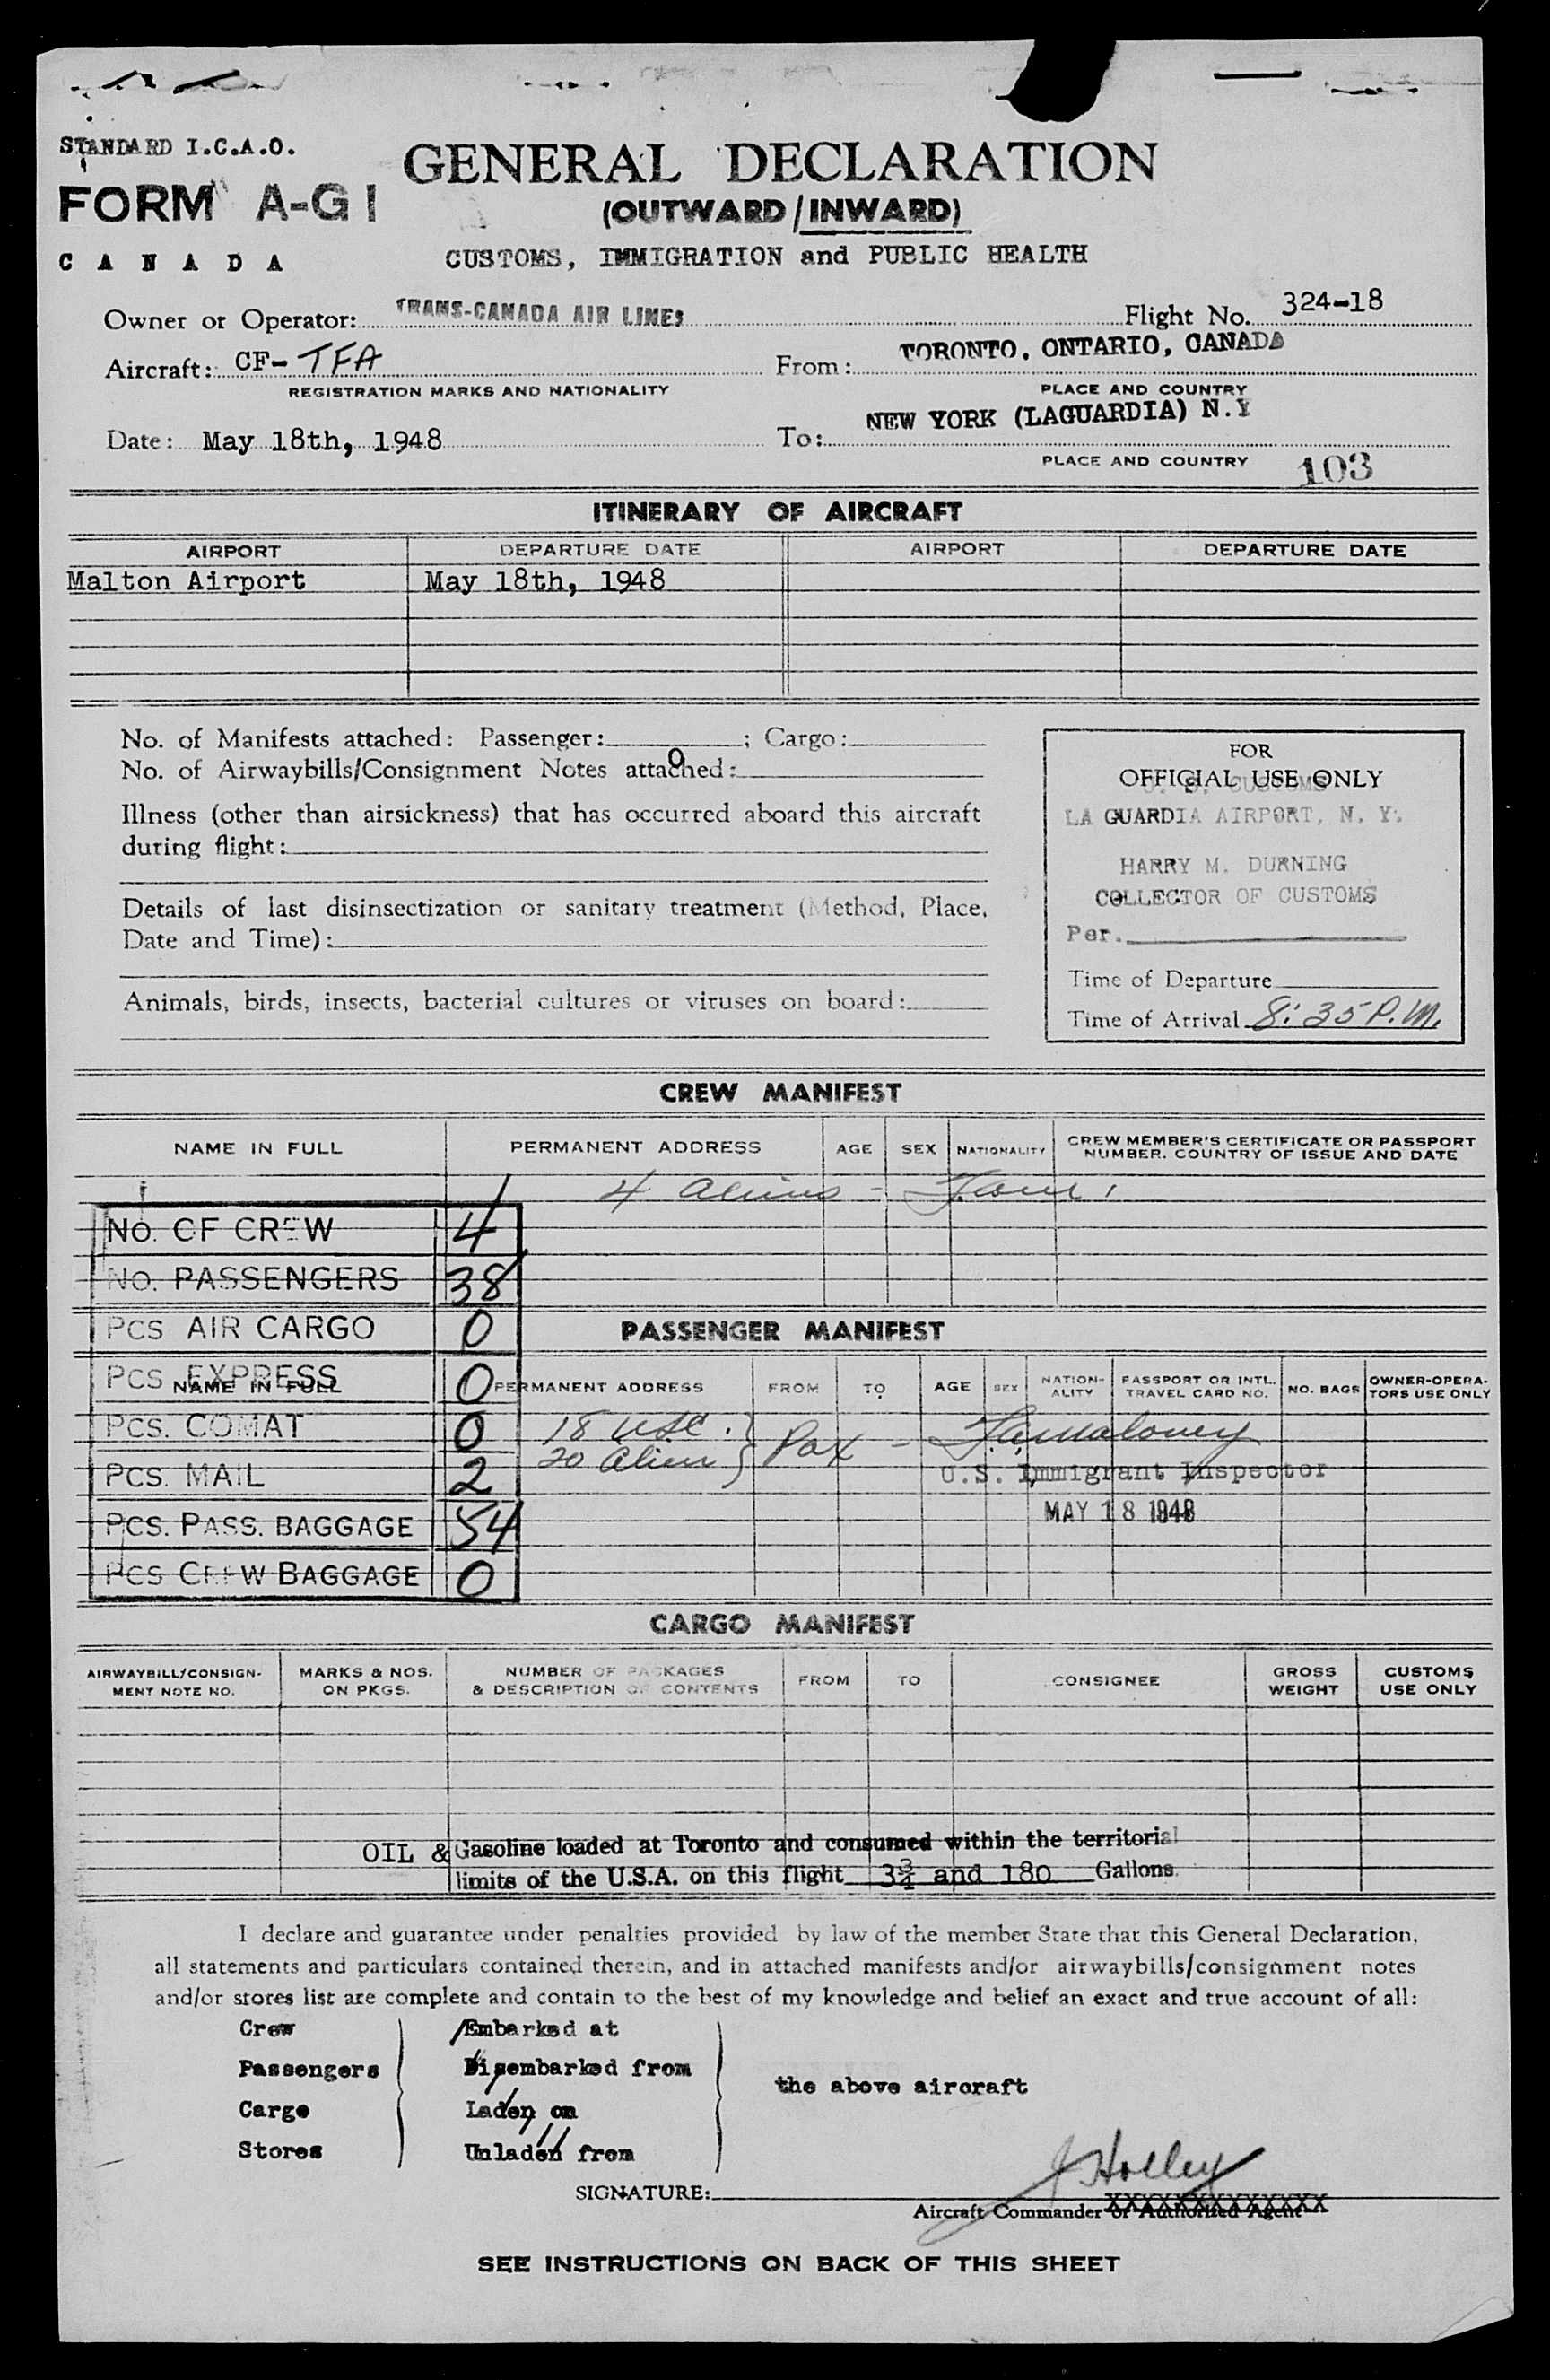 STANDARD I.C.A.O.
FORM A-G1
CANADA
GENERAL DECLARATION
(OUTWARD/INWARD)
CUSTOMS, IMMIGRATION and PUBLIC HEALTH
Owner or Operator: TRANS-CANADA AIR LINES Flight No. 324-18
Aircraft: CF-TFA From: TORONTO, ONTARIO, CANADA
REGISTRATION MARKS AND NATIONALITY PLACE AND COUNTRY
Date: May 18th, 1948 To: NEW YORK (LAGUARDIA) N.Y
PLACE AND COUNTRY 103
ITINERARY OF AIRCRAFT
AIRPORT DEPARTURE DATE AIRPORT DEPARTURE DATE
Malton Airport May 18th, 1948
No. of Manifests attached: Passenger: ; Cargo:
No. of Airwaybills/Consignment Notes attached: 0
Illness (other than airsickness) that has occurred aboard this aircraft
during flight:
Details of last disinsectization or sanitary treatment (Method, Place,
Date and Time):
Animals, birds, insects, bacterial cultures or viruses on board:
FOR
OFFICIAL USE ONLY
U. S. CUSTOMS
LA GUARDIA AIRPORT, N. Y.
HARRY M. DURNING
COLLECTOR OF CUSTOMS
Per.
Time of Departure
Time of Arrival 8:35 P.M.
CREW MANIFEST
NAME IN FULL PERMANENT ADDRESS AGE SEX NATIONALITY CREW MEMBER'S CERTIFICATE OR PASSPORT
NUMBER. COUNTRY OF ISSUE AND DATE
4 Aliens -
No. OF CREW 4
No. PASSENGERS 38
PCS AIR CARGO 0
PCS EXPRESS 0
PCS. COMAT 0
PCS. MAIL 2
PCS. PASS. BAGGAGE 54
PCS CREW BAGGAGE 0
PASSENGER MANIFEST
NAME IN FULL PERMANENT ADDRESS FROM TO AGE SEX NATION-
ALITY PASSPORT OR INTL.
TRAVEL CARD NO. NO. BAGS OWNER-OPERA-
TORS USE ONLY
18 USC.
20 Alien } Pax - Maloney
U.S. Immigrant Inspector
MAY 18 1948
CARGO MANIFEST
AIRWAYBILL/CONSIGN-
MENT NOTE NO. MARKS & NOS.
ON PKGS. NUMBER OF PACKAGES
& DESCRIPTION OF CONTENTS FROM TO CONSIGNEE GROSS
WEIGHT CUSTOMS
USE ONLY
OIL & Gasoline loaded at Toronto and consumed within the territorial
limits of the U.S.A. on this flight 3¾ and 180 Gallons.
I declare and guarantee under penalties provided by law of the member State that this General Declaration,
all statements and particulars contained therein, and in attached manifests and/or airwaybills/consignment notes
and/or stores list are complete and contain to the best of my knowledge and belief an exact and true account of all:
Crew Embarked at
Passengers Disembarked from
the above aircraft
Cargo Laden on
Stores Unladen from
J Holley
SIGNATURE:
Aircraft Commander or Authorized Agent
XXXXXXXXXXXXX
SEE INSTRUCTIONS ON BACK OF THIS SHEET